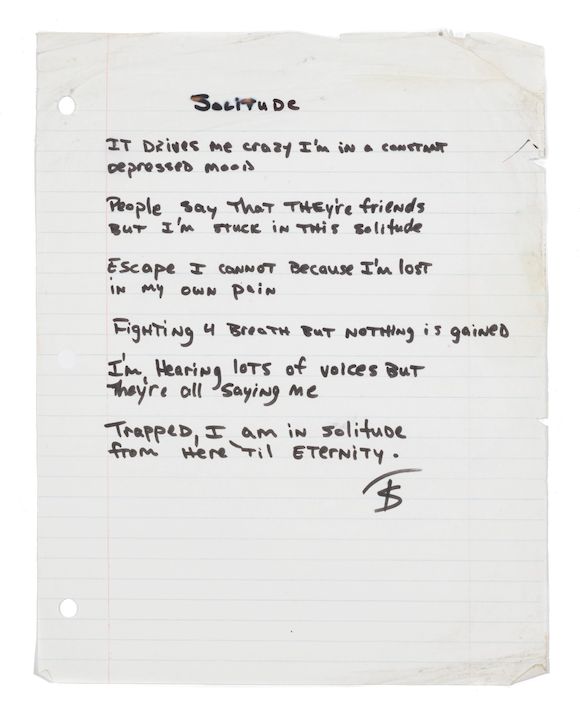 SOLITUDE
IT DRIVES ME CRAZY I'M IN A CONSTANT
DEPRESSED MOOD
People say THAT THEy're friends
BUT I'M STUCK IN THIS solitude
Escape I CANNOT Because I'm lost
in my own pain
Fighting 4 BREATH BUT NOTHING is gained
I'm, Hearing lOTS of voices BUT
They're all saying ME
Trapped, I am in solitude
from HERE 'Til ETERNITY.